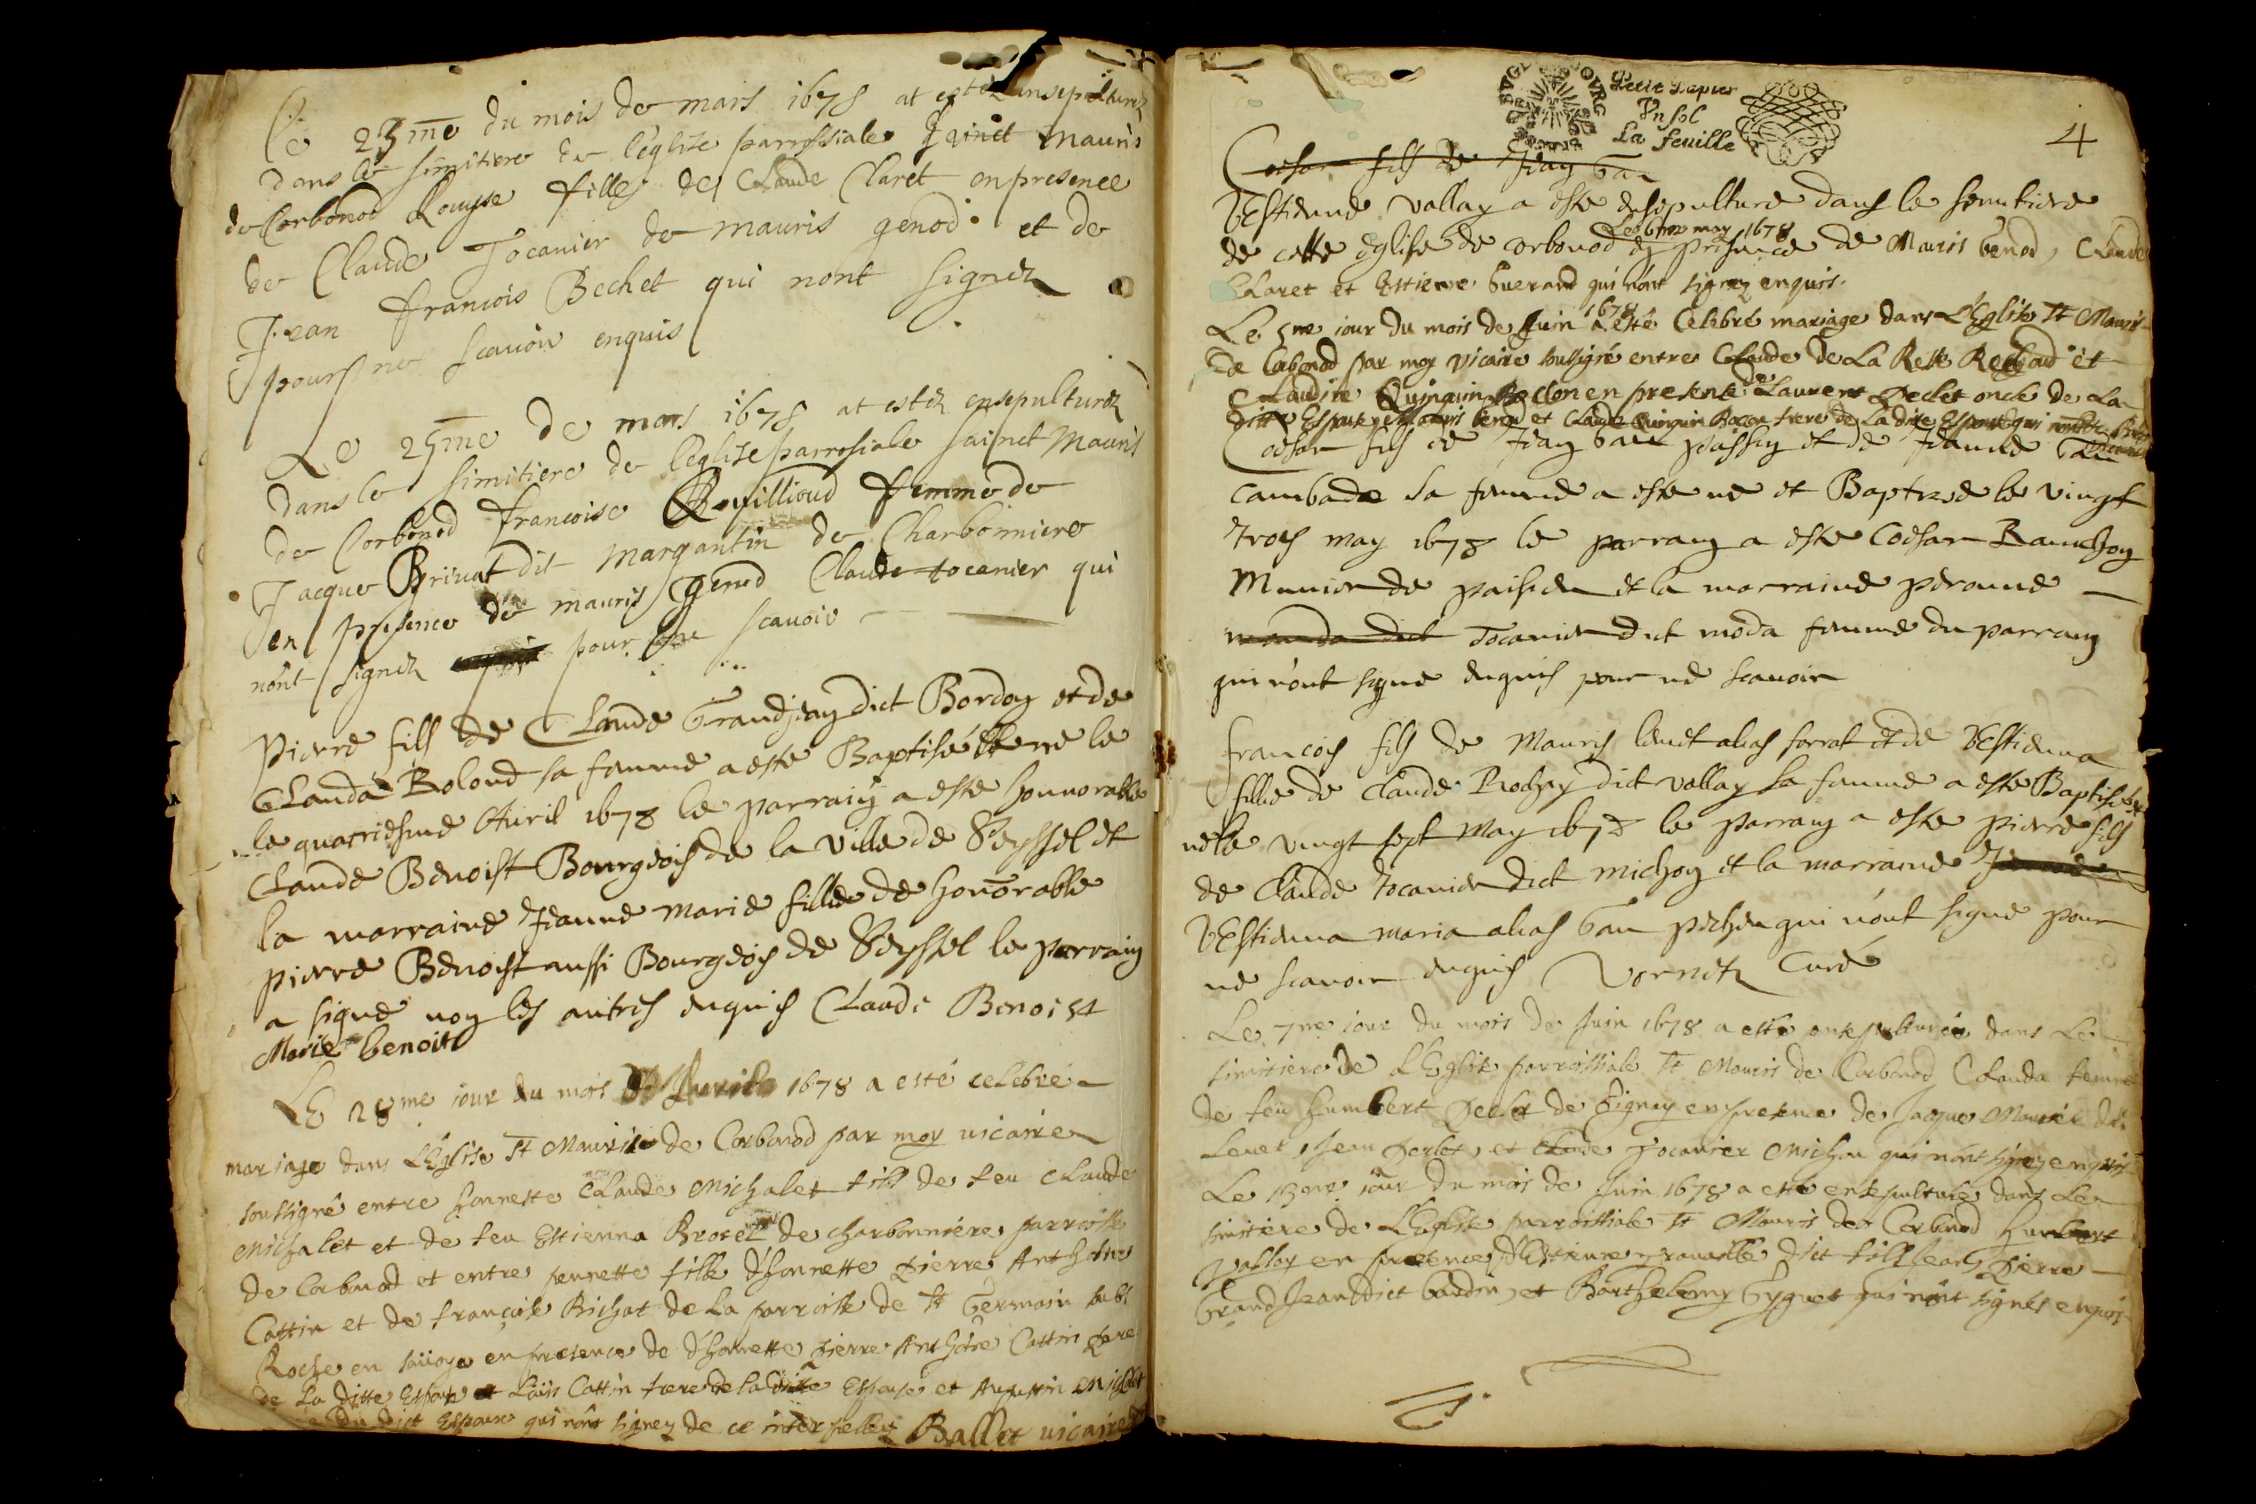 Le 23me du mois de mars 1678 at estéz ensepulturéz
dans le simitiere de leglize parrossiale sainct Mauris
de Corbonod Rouyse fille de Claude Claret en presence
de Claude Tocanier de mauris genod et de
Jean francois Bechet qui nont signez
pour ne scauoir enquis
Le 25me de mars 1678 at estéz ensepulturéz
dans le simitiere de leglize parrosiale sainct Mauris
de Corbonod francoise Rouillioud femme de
Jacque Priuat dit margantin de Charbonniere
en presence de mauris genod Claude tocanier qui
nont signez pour ne scauoir
Pierre fils de Claude Grandjean dict Bordon et de
Clauda Bolond sa femme a esté Baptisé ne le
le quatriesme Auril 1678 le parrain a este honnorable
Claude Benoist Bourgeois de la ville de Seyssel et
la marraine Jeanne Marie fille de honnorable
pierre Benoist aussi Bourgeois de Seyssel le parrain
a signe non les autres enquis Claude Benoist
Marie benoit
Le 28me iour du mois d'Auril 1678 a esté celebré
mariage dans L'Eglise St Mauris de Corbonod par moy uicaire
soussigné entre honneste Claude Michalet fils de feu Claude
Michalet et de feu Estienna Broset de charbonniere parroisse
de Corbonod et entre pernette fille d'honneste Pierre Anthoine
Cattin et de françoise Richat de la parroisse de St Germain sus
Roche en sauoye en presence de d'honneste pierre Anthoine Cattin pere
de la ditte Espouse et Louis Cattin frere de la ditte Espouse et Augustin Michalet
du dict Espoux qui n'ont signez de ce interpellez Ballet uicaire
Petit Papier
Vn sol
La feuille
4
Coesar fils de Jean Gau
l'Estienne vallay a este ensepulture dans le semitiere
Le 6me may 1678
de cette Eglise de corbonod en presence de Mauris Genod, Claude
Claret et Estienne Guerand qui n'ont signez enquis.
1678
Le 5me iour du mois de Juin a esté Celebré mariage dans L'Eglise St Mauris
de Corbonod par moy vicaire soussigné entre Claude de La Rette et
Claudine Quinquin Bollon en presence de Laurent Declet oncle de La
ditte Espouse et Mauris Genod et Claude Quinquin frere de La dite Espouse qui n'ont
Coesar fils de Jean Gau passin et de Jeanne Gau
Cambade sa femme a este ne et Baptize le vingt
trois may 1678 le parrain a este Coesar
Munier de et la marraine peronne
Tocanier dict moda femme du parrain
qui n'ont signe enquis pour ne scauoir
francois fils de Mauris leuet alias forrat et de l'Estienna
fille de Claude Rochay dict vallay sa femme a este Baptise et
ne le vingt sept May 1678 le parrain a este pierre fils
de Claude tocanier dict michon et la marraine Jeanne
l'Estienna maria alias Gau qui n'ont signe pour
ne scauoir enquis Vornetz Curé
Le 7me iour du mois de Juin 1678 a esté ensepulturée dans Le
simitiere de L'Eglise parroissiale St Mauris de Corbonod Clauda femme
de feu humbert Declet de Gignay en presence de Jacque Mauris dit
Leuet, Jean Declet, et Claude Tocanier Michon qui n'ont signez enquis
Le 13me iour du mois de Juin 1678 a esté ensepulturé dans Le
simitiere de L'Eglise parroissiale St Mauris de Corbonod humbert
Valloy en presence d'Estienne dict fill Jean, Pierre
Grand Jean dict Gaudin, et Barthelemy Gyguet qui n'ont signés enquis